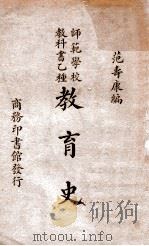 范壽康編
師範學校
教科書乙種
教育史
商務印書館發行
www.mtoou.info